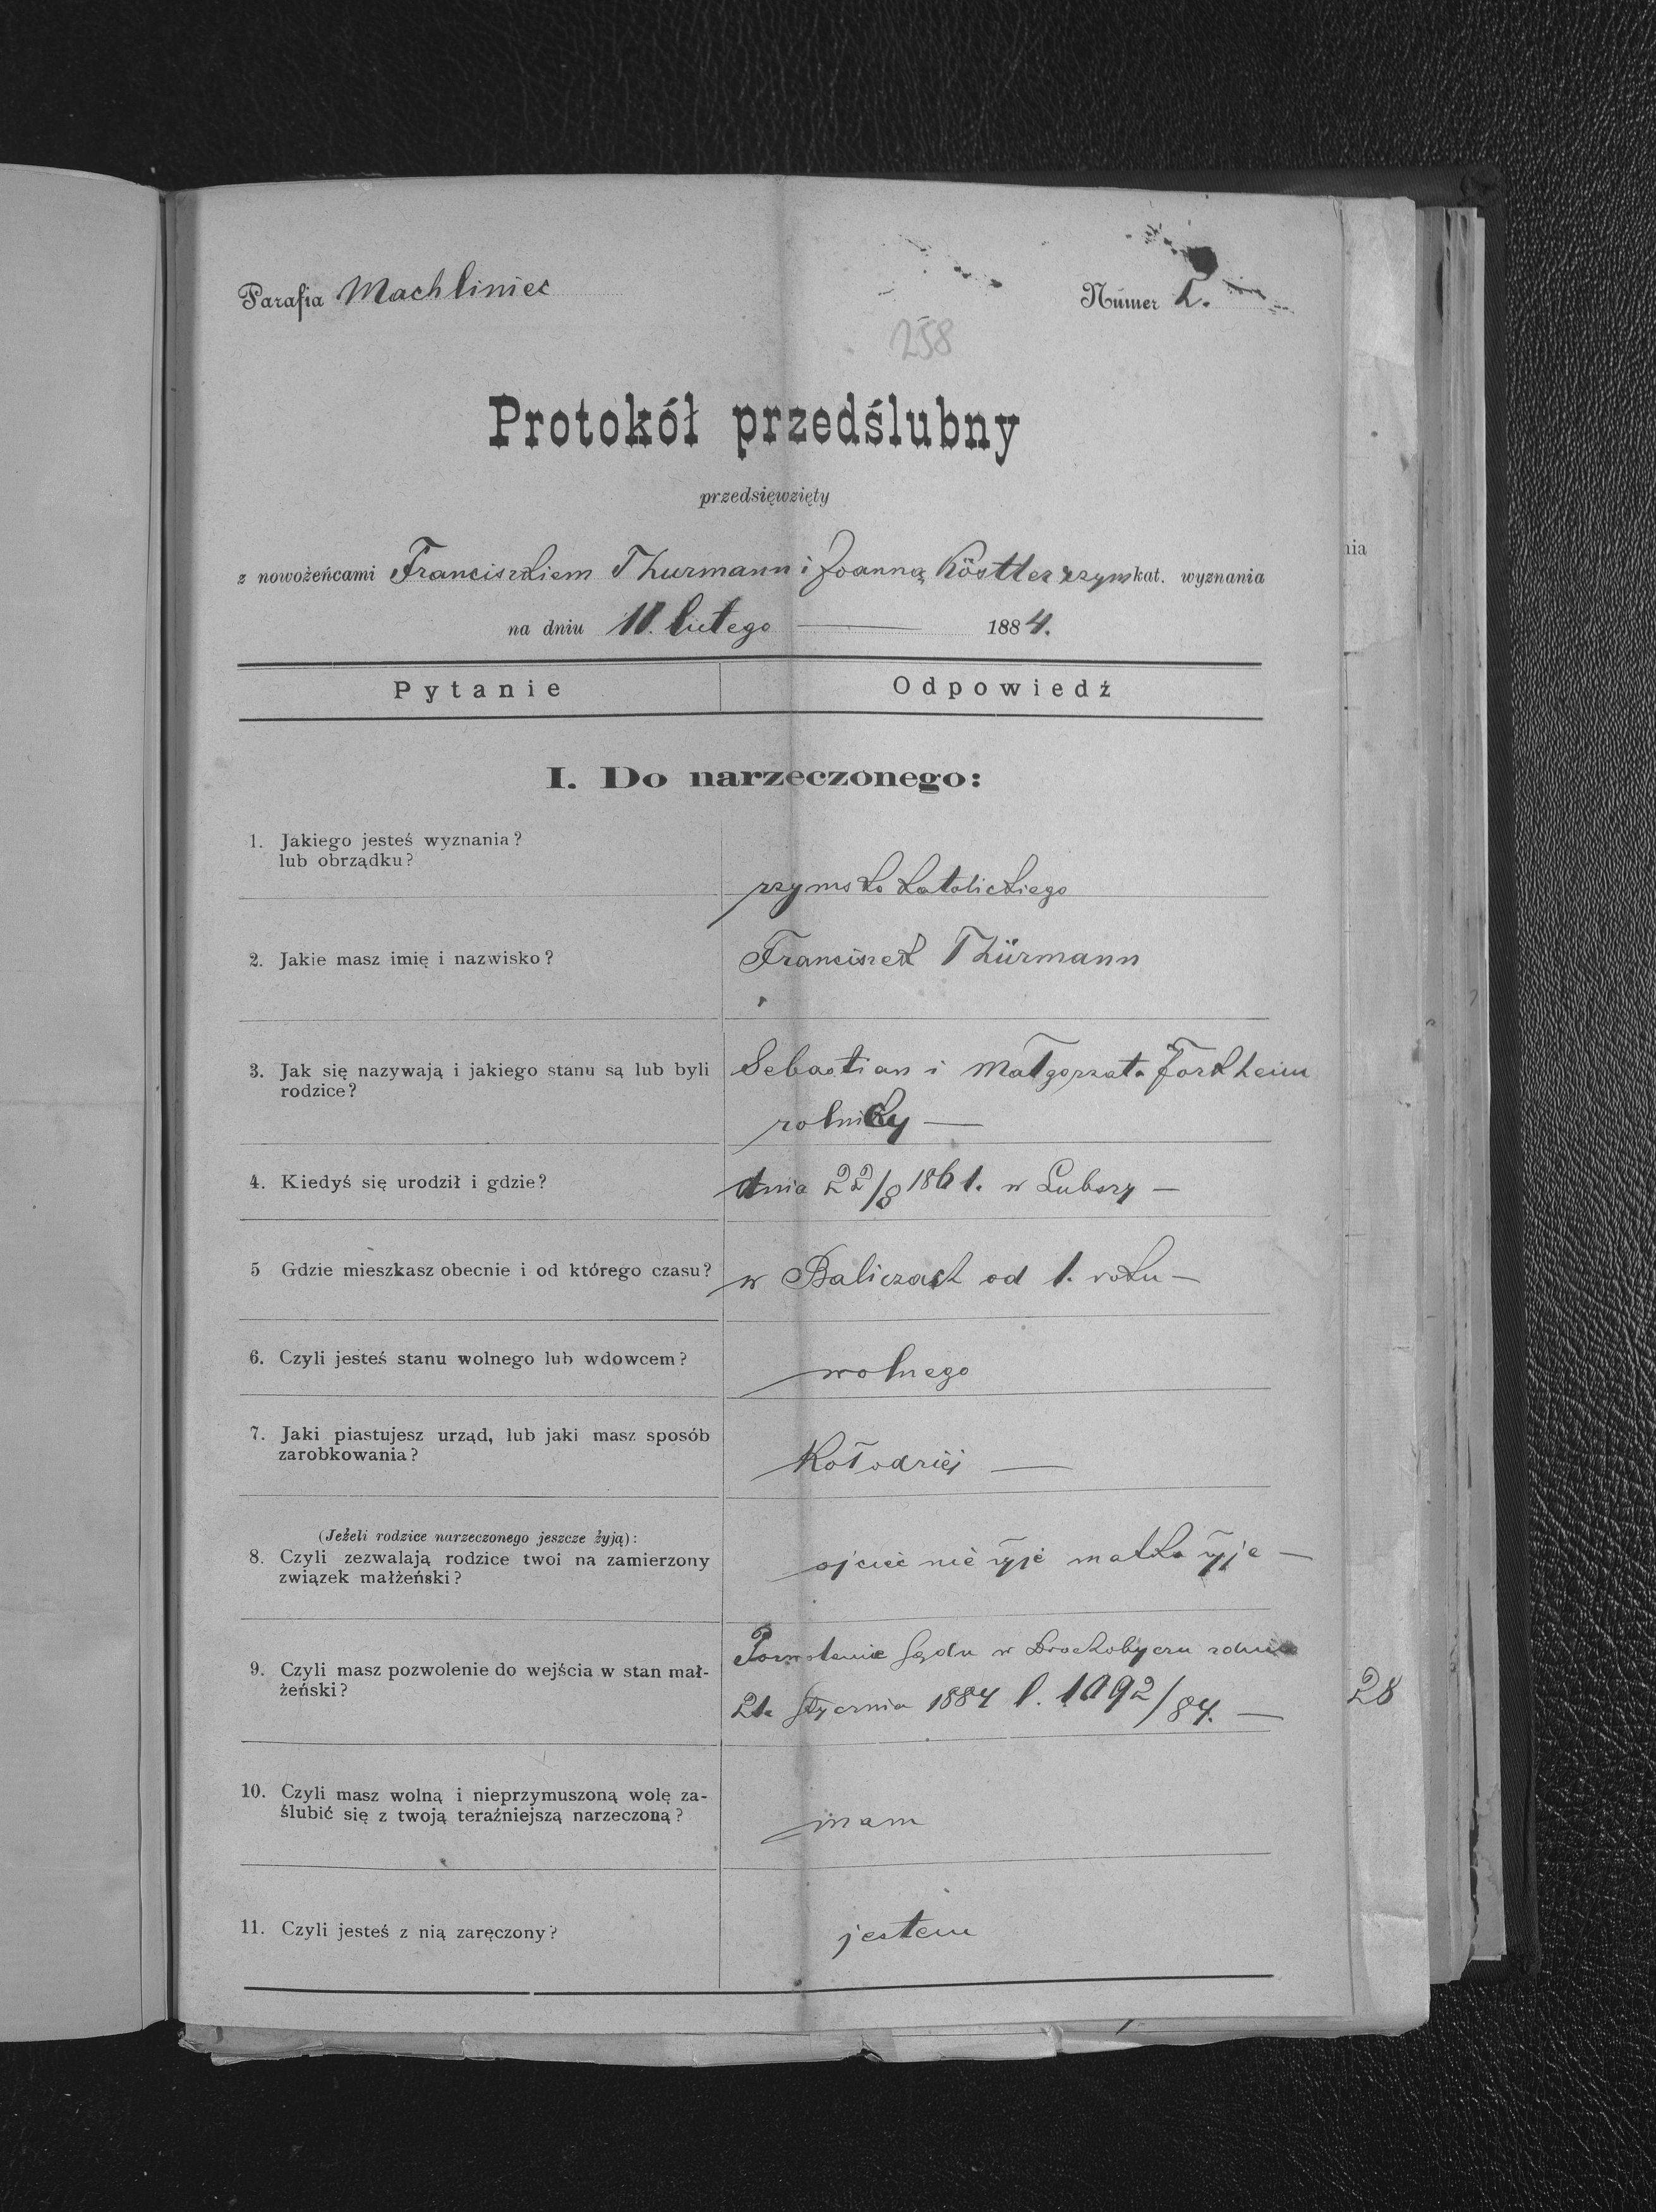 Parafia Machliniec Númer 2.
258
Protokół przedślubny
przedsięwzięty
z nowożeńcami Franciszkiem Thurmann i Joanną Köstler rzymkat. wyznania
na dniu 11. lutego — 1884.
Pytanie Odpowiedź
I. Do narzeczonego:
1. Jakiego jesteś wyznania?
lub obrządku?
rzymsko katolickiego
2. Jakie masz imię i nazwisko? Franciszek Thürmann
3. Jak się nazywają i jakiego stanu są lub byli Sebastian i Małgorzata Forkheim
rodzice?
rolnicy —
4. Kiedyś się urodził i gdzie? dnia 22/8 1861. w Lubszy —
5 Gdzie mieszkasz obecnie i od którego czasu? w Baliczach od 1. roku —
6. Czyli jesteś stanu wolnego lub wdowcem? wolnego
7. Jaki piastujesz urząd, lub jaki masz sposób
zarobkowania? Kołodziej —
(Jeżeli rodzice narzeczonego jeszcze żyją):
8. Czyli zezwalają rodzice twoi na zamierzony ojciec nie żyje matka żyje —
związek małżeński?
Pozwolenie sądu w Drohobyczu
9. Czyli masz pozwolenie do wejścia w stan mał-
żeński? 21. Stycznia 1884 l. 1092/84. —
10. Czyli masz wolną i nieprzymuszoną wolę za-
ślubić się z twoją teraźniejszą narzeczoną? mam
11. Czyli jesteś z nią zaręczony? jestem
nia
28